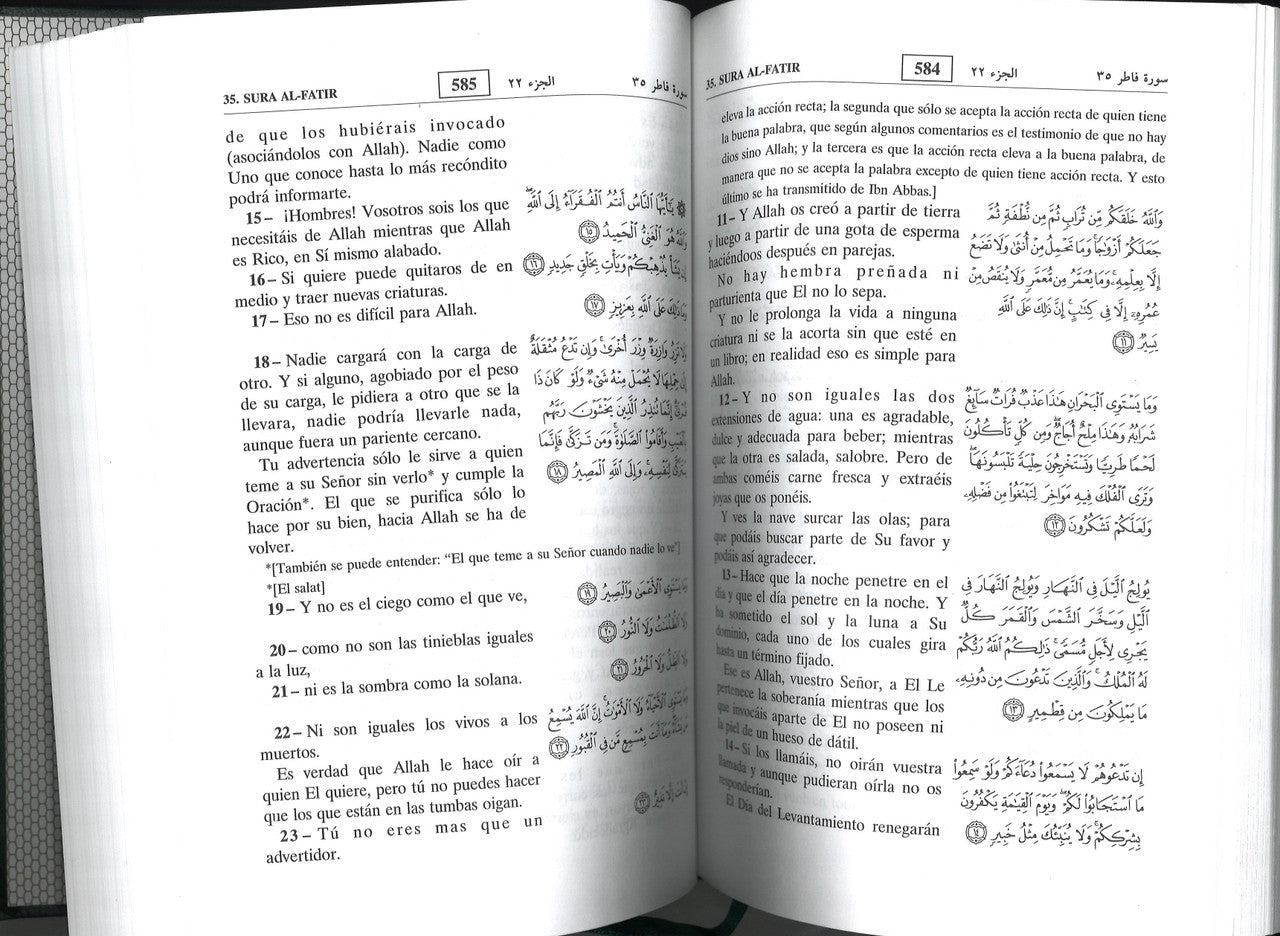 35. SURA AL-FATIR 584 الجزء ٢٢ سورة فاطر ٣٥
eleva la acción recta; la segunda que sólo se acepta la acción recta de quien tiene
la buena palabra, que según algunos comentarios es el testimonio de que no hay
dios sino Allah; y la tercera es que la acción recta eleva a la buena palabra, de
manera que no se acepta la palabra excepto de quien tiene acción recta. Y esto
último se ha transmitido de Ibn Abbas.]
11– Y Allah os creó a partir de tierra
y luego a partir de una gota de esperma
haciéndoos después en parejas.
No hay hembra preñada ni
parturienta que El no lo sepa.
Y no le prolonga la vida a ninguna
criatura ni se la acorta sin que esté en
un libro; en realidad eso es simple para
Allah.
12– Y no son iguales las dos
extensiones de agua: una es agradable,
dulce y adecuada para beber; mientras
que la otra es salada, salobre. Pero de
ambas coméis carne fresca y extraéis
joyas que os ponéis.
Y ves la nave surcar las olas; para
que podáis buscar parte de Su favor y
podáis así agradecer.
13– Hace que la noche penetre en el
día y que el día penetre en la noche. Y
ha sometido el sol y la luna a Su
dominio, cada uno de los cuales gira
hasta un término fijado.
Ese es Allah, vuestro Señor, a El Le
pertenece la soberanía mientras que los
que invocáis aparte de El no poseen ni
la piel de un hueso de dátil.
14– Si los llamáis, no oirán vuestra
llamada y aunque pudieran oírla no os
responderían.
El Día del Levantamiento renegarán
وَٱللَّهُ خَلَقَكُم مِّن تُرَابٍ ثُمَّ مِن نُّطْفَةٍ ثُمَّ
جَعَلَكُمْ أَزْوَٰجًا وَمَا تَحْمِلُ مِنْ أُنثَىٰ وَلَا تَضَعُ
إِلَّا بِعِلْمِهِۦ وَمَا يُعَمَّرُ مِن مُّعَمَّرٍ وَلَا يُنقَصُ مِنْ
عُمُرِهِۦٓ إِلَّا فِى كِتَٰبٍ إِنَّ ذَٰلِكَ عَلَى ٱللَّهِ
يَسِيرٌ ١١
وَمَا يَسْتَوِى ٱلْبَحْرَانِ هَٰذَا عَذْبٌ فُرَاتٌ سَآئِغٌ
شَرَابُهُۥ وَهَٰذَا مِلْحٌ أُجَاجٌ وَمِن كُلٍّ تَأْكُلُونَ
لَحْمًا طَرِيًّا وَتَسْتَخْرِجُونَ حِلْيَةً تَلْبَسُونَهَا
وَتَرَى ٱلْفُلْكَ فِيهِ مَوَاخِرَ لِتَبْتَغُوا۟ مِن فَضْلِهِۦ
وَلَعَلَّكُمْ تَشْكُرُونَ ١٢
يُولِجُ ٱلَّيْلَ فِى ٱلنَّهَارِ وَيُولِجُ ٱلنَّهَارَ فِى
ٱلَّيْلِ وَسَخَّرَ ٱلشَّمْسَ وَٱلْقَمَرَ كُلٌّ
يَجْرِى لِأَجَلٍ مُّسَمًّى ذَٰلِكُمُ ٱللَّهُ رَبُّكُمْ
لَهُ ٱلْمُلْكُ وَٱلَّذِينَ تَدْعُونَ مِن دُونِهِۦ
مَا يَمْلِكُونَ مِن قِطْمِيرٍ ١٣
إِن تَدْعُوهُمْ لَا يَسْمَعُوا۟ دُعَآءَكُمْ وَلَوْ سَمِعُوا۟
مَا ٱسْتَجَابُوا۟ لَكُمْ وَيَوْمَ ٱلْقِيَٰمَةِ يَكْفُرُونَ
بِشِرْكِكُمْ وَلَا يُنَبِّئُكَ مِثْلُ خَبِيرٍ ١٤
35. SURA AL-FATIR 585 الجزء ٢٢ سورة فاطر ٣٥
de que los hubiérais invocado
(asociándolos con Allah). Nadie como
Uno que conoce hasta lo más recóndito
podrá informarte.
15– ¡Hombres! Vosotros sois los que
necesitáis de Allah mientras que Allah
es Rico, en Sí mismo alabado.
16– Si quiere puede quitaros de en
medio y traer nuevas criaturas.
17– Eso no es difícil para Allah.
18– Nadie cargará con la carga de
otro. Y si alguno, agobiado por el peso
de su carga, le pidiera a otro que se la
llevara, nadie podría llevarle nada,
aunque fuera un pariente cercano.
Tu advertencia sólo le sirve a quien
teme a su Señor sin verlo* y cumple la
Oración*. El que se purifica sólo lo
hace por su bien, hacia Allah se ha de
volver.
*[También se puede entender: “El que teme a su Señor cuando nadie lo ve”]
*[El salat]
19– Y no es el ciego como el que ve,
20– como no son las tinieblas iguales
a la luz,
21– ni es la sombra como la solana.
22– Ni son iguales los vivos a los
muertos.
Es verdad que Allah le hace oír a
quien El quiere, pero tú no puedes hacer
que los que están en las tumbas oigan.
23– Tú no eres mas que un
advertidor.
يَٰٓأَيُّهَا ٱلنَّاسُ أَنتُمُ ٱلْفُقَرَآءُ إِلَى ٱللَّهِ
وَٱللَّهُ هُوَ ٱلْغَنِىُّ ٱلْحَمِيدُ ١٥
إِن يَشَأْ يُذْهِبْكُمْ وَيَأْتِ بِخَلْقٍ جَدِيدٍ ١٦
وَمَا ذَٰلِكَ عَلَى ٱللَّهِ بِعَزِيزٍ ١٧
وَلَا تَزِرُ وَازِرَةٌ وِزْرَ أُخْرَىٰ وَإِن تَدْعُ مُثْقَلَةٌ
إِلَىٰ حِمْلِهَا لَا يُحْمَلْ مِنْهُ شَىْءٌ وَلَوْ كَانَ ذَا
قُرْبَىٰٓ إِنَّمَا تُنذِرُ ٱلَّذِينَ يَخْشَوْنَ رَبَّهُم
بِٱلْغَيْبِ وَأَقَامُوا۟ ٱلصَّلَوٰةَ وَمَن تَزَكَّىٰ فَإِنَّمَا
يَتَزَكَّىٰ لِنَفْسِهِۦ وَإِلَى ٱللَّهِ ٱلْمَصِيرُ ١٨
وَمَا يَسْتَوِى ٱلْأَعْمَىٰ وَٱلْبَصِيرُ ١٩
وَلَا ٱلظُّلُمَٰتُ وَلَا ٱلنُّورُ ٢٠
وَلَا ٱلظِّلُّ وَلَا ٱلْحَرُورُ ٢١
وَمَا يَسْتَوِى ٱلْأَحْيَآءُ وَلَا ٱلْأَمْوَٰتُ إِنَّ ٱللَّهَ يُسْمِعُ
مَن يَشَآءُ وَمَآ أَنتَ بِمُسْمِعٍ مَّن فِى ٱلْقُبُورِ ٢٢
إِنْ أَنتَ إِلَّا نَذِيرٌ ٢٣